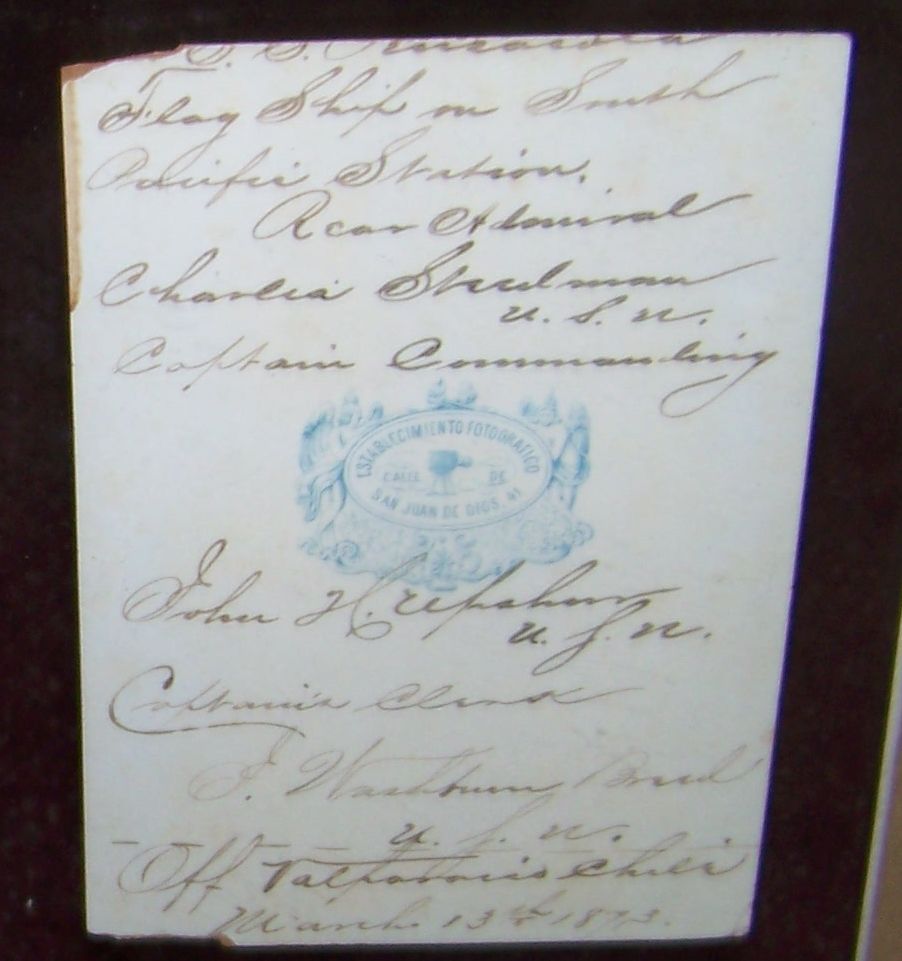 U. S. S. Pensacola
Flag Ship on South
Pacific Station.
Rear Admiral
Charles Steedman
U. S. N.
Captain Commanding
ESTABLECIMIENTO FOTOGRAFICO
CALLE DE
SAN JUAN DE DIOS, 41
John H. Upshur
U. S. N.
Captain's Clerk
F. Washburn
U. S. N.
Off Valparaiso Chili
March 13th 1873.